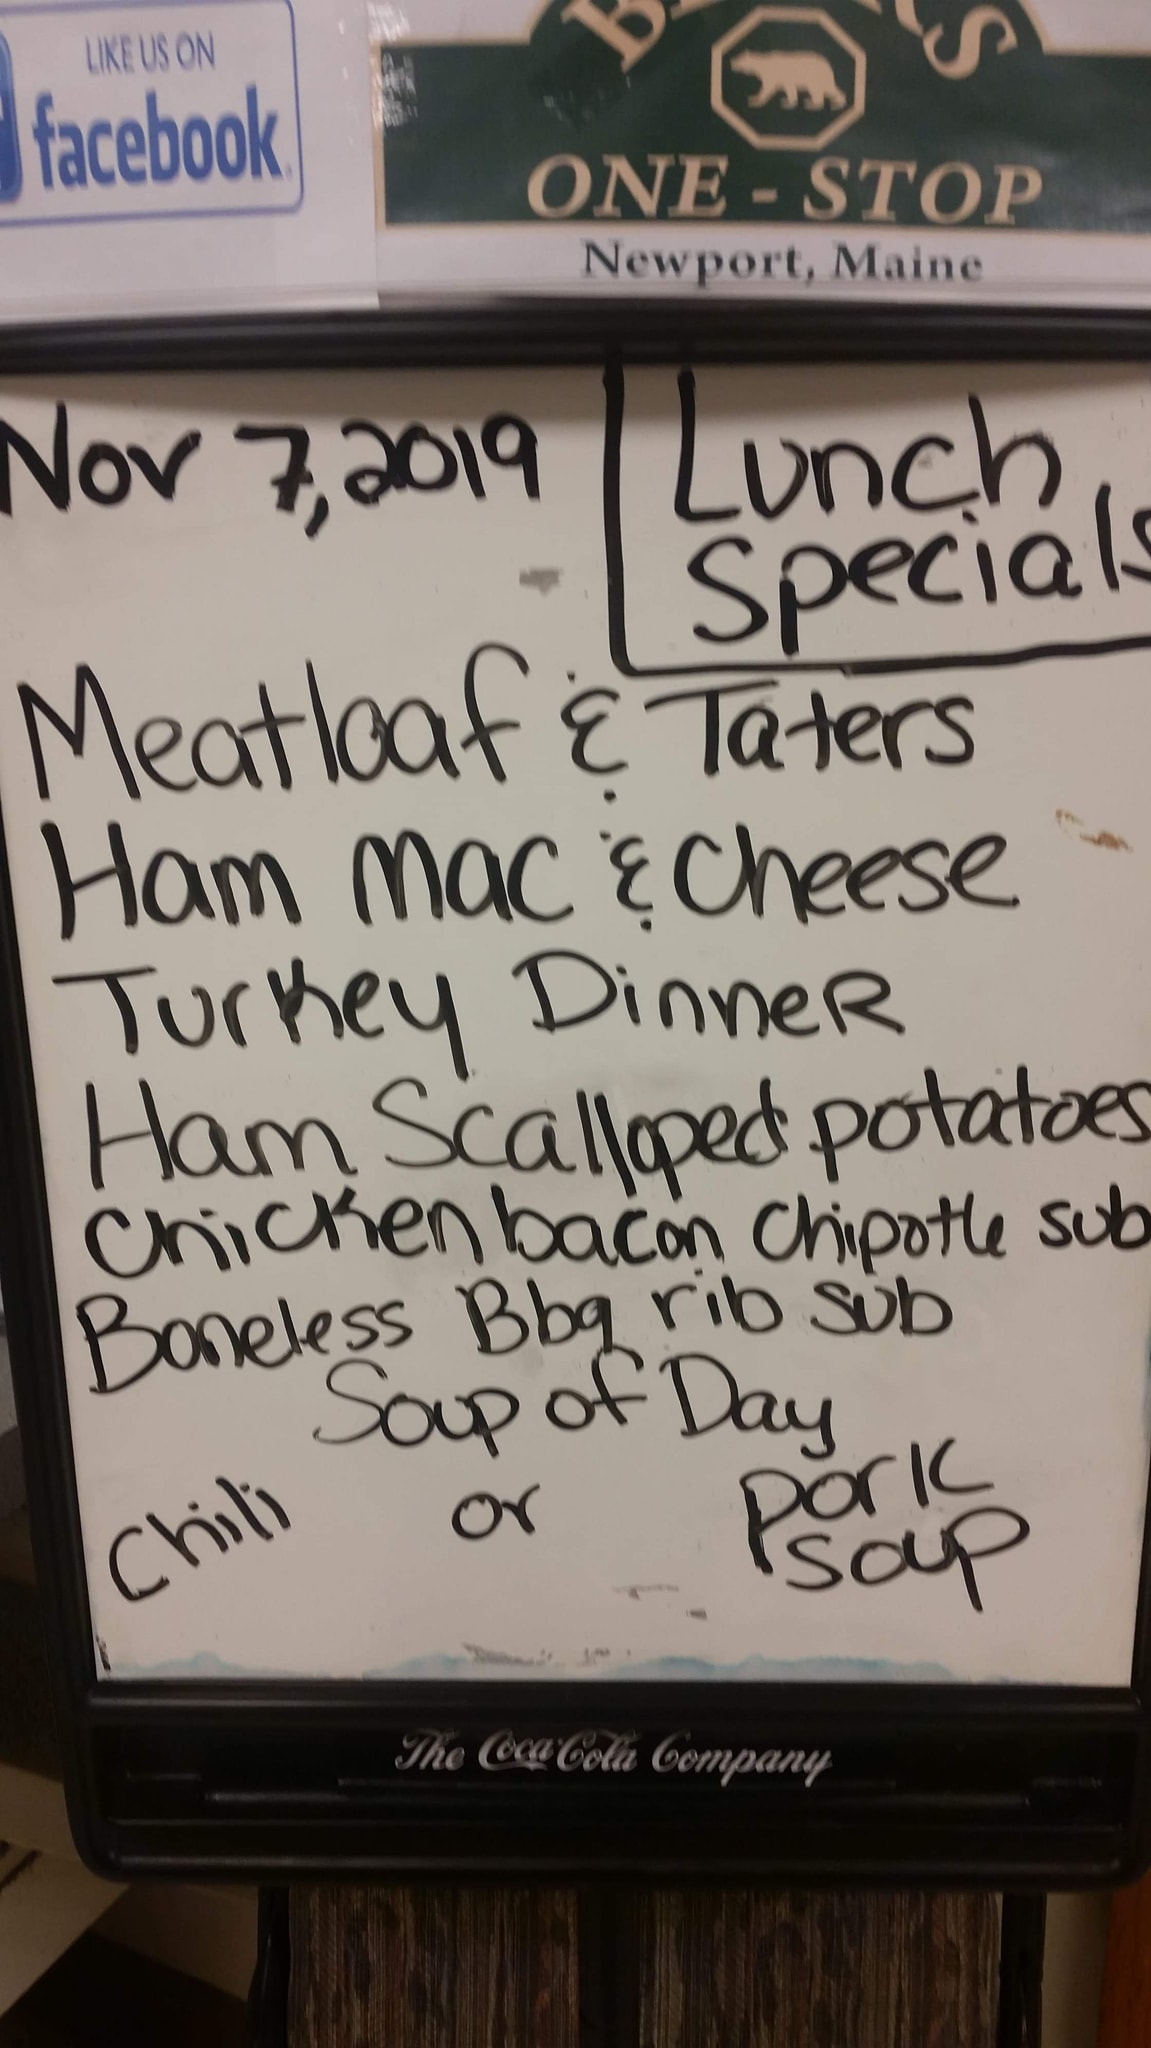 LIKE US ON
facebook
ONE-STOP
Newport, Maine
Nov 7, 2019
Lunch
Specials
Meatloaf & Taters
Ham Mac & Cheese
Turkey Dinner
Ham Scalloped potatoes
Chicken bacon Chipotle sub
Boneless Bbq rib sub
Soup of Day
Chili or pork
soup
The Coca-Cola Company